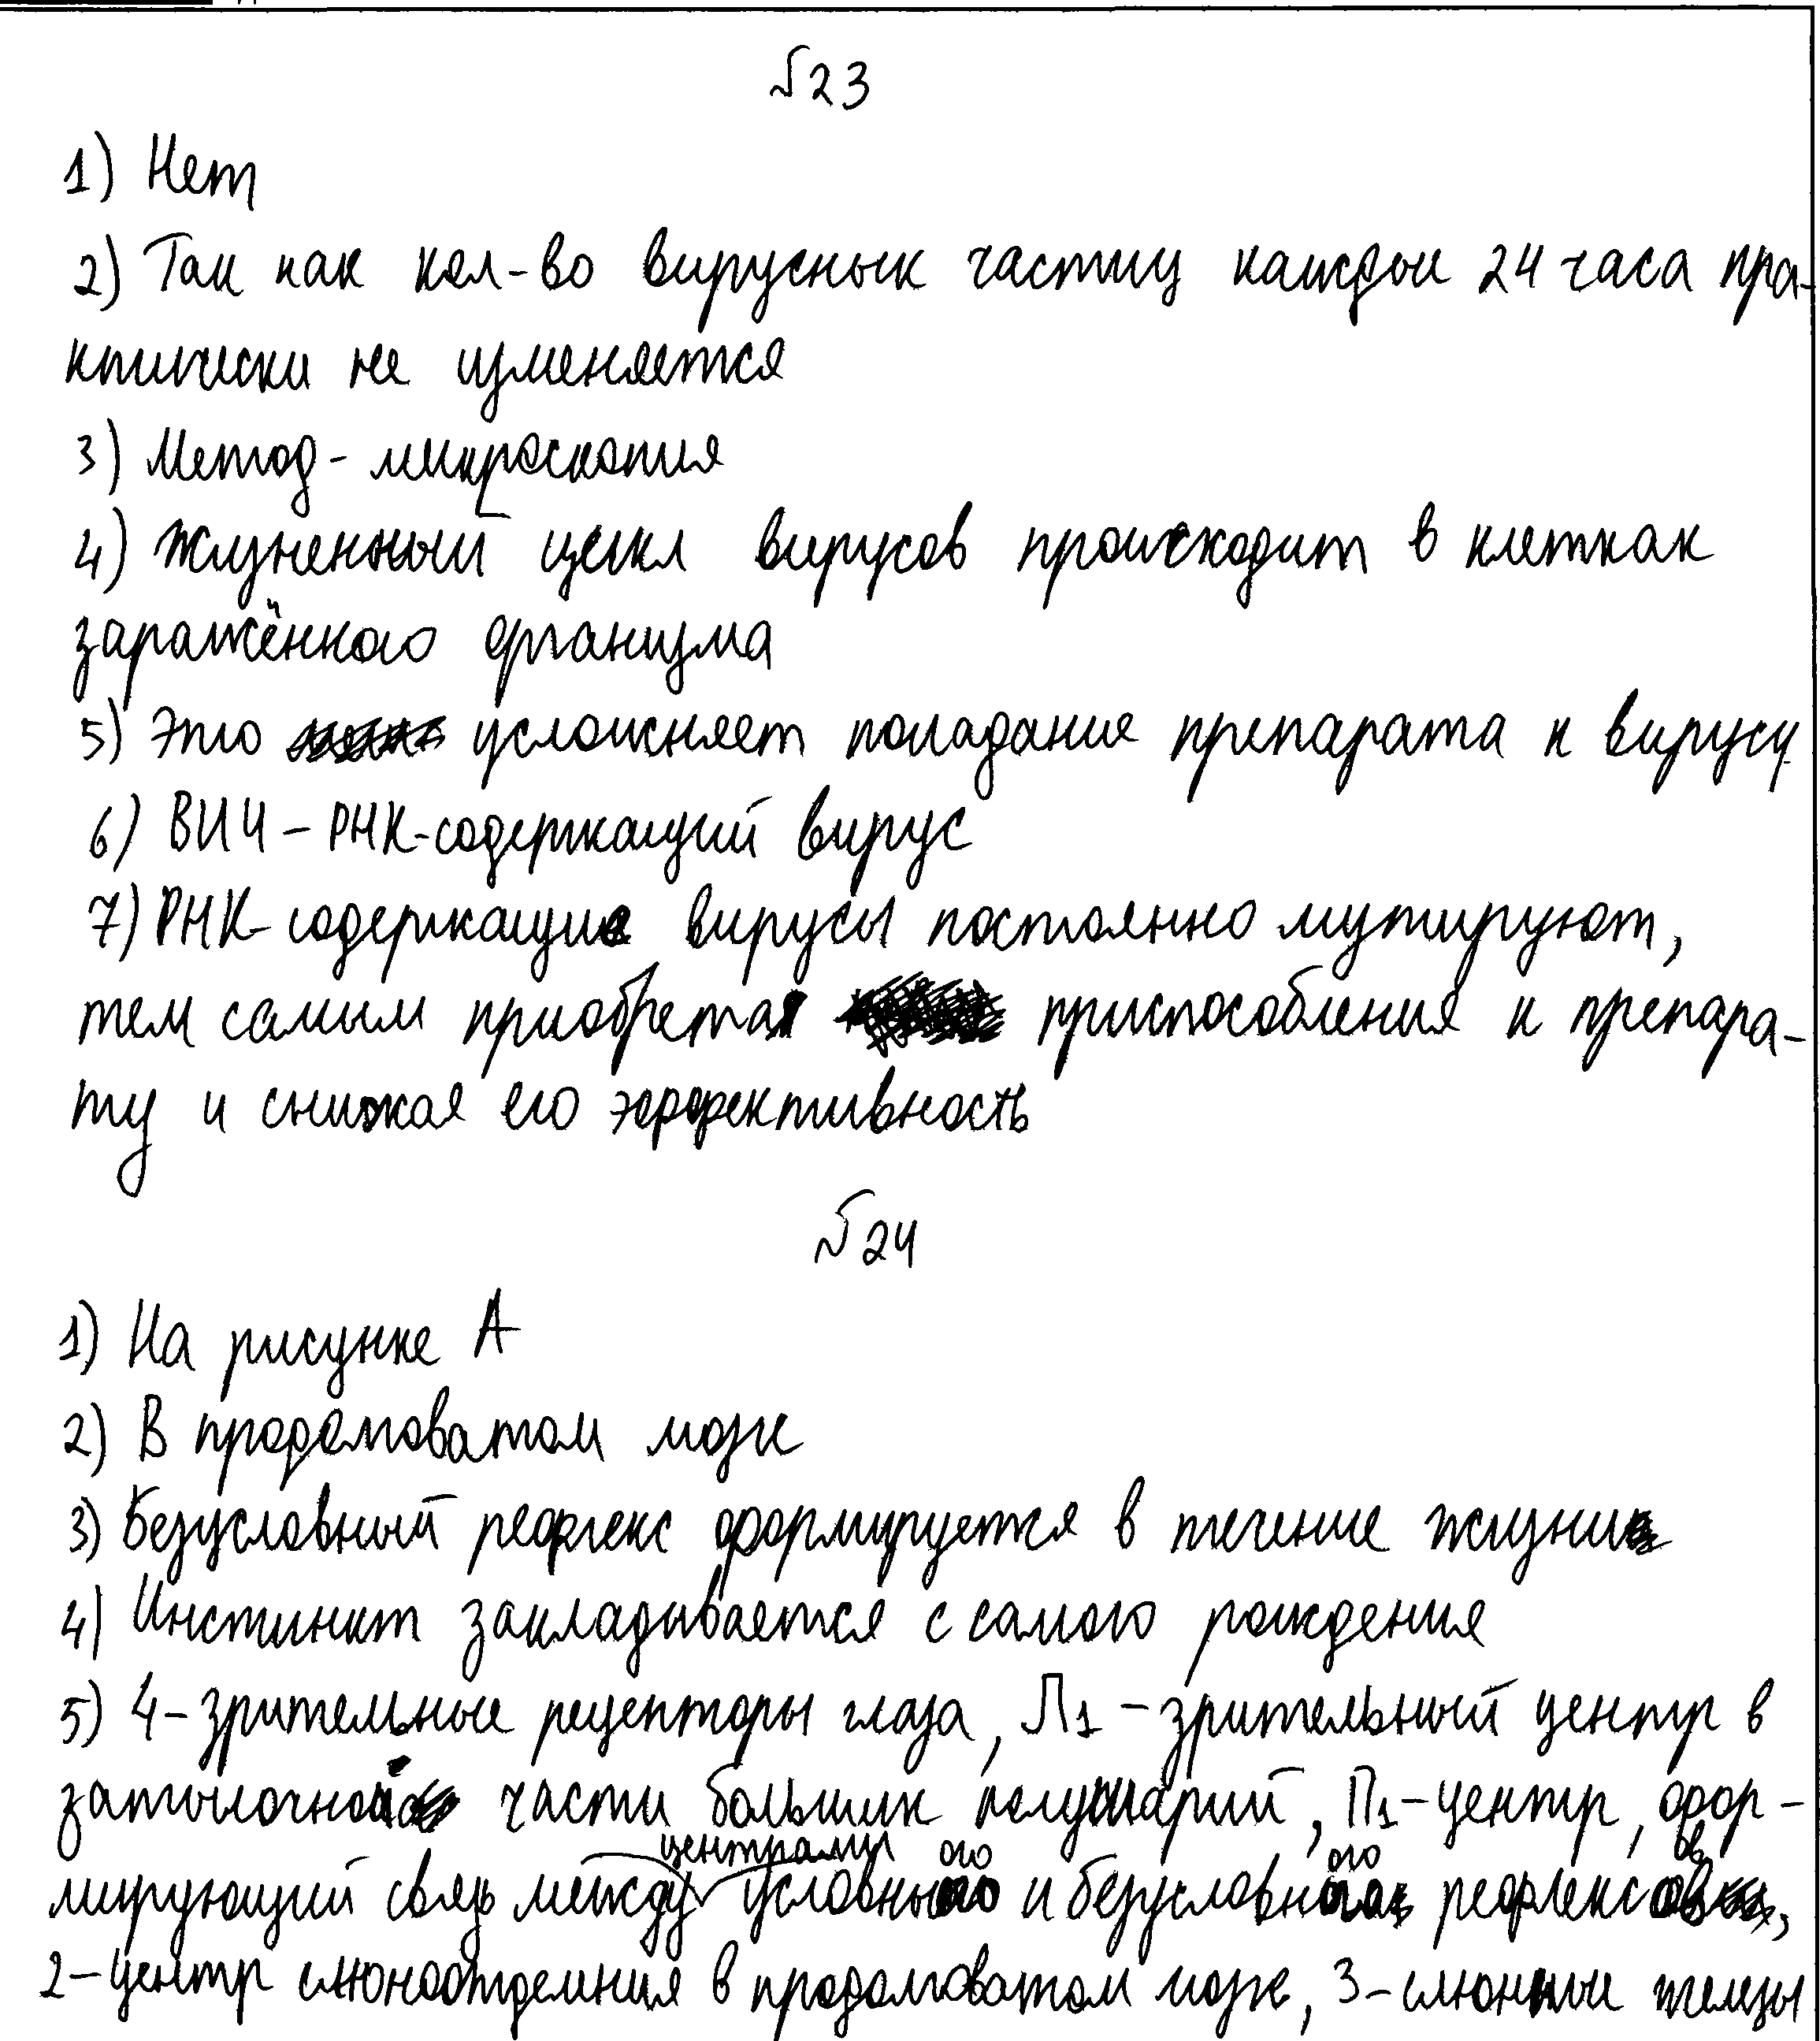 №23
1) Нет
2) Так как кол-во вирусных частиц каждые 24 часа пра-
ктически не изменяется
3) Метод - микроскопия
4) Жизненный цикл вирусов происходит в клетках
заражённого организма
5) Это усложняет попадание препарата к вирусу
6) ВИЧ – РНК-содержащий вирус
7) РНК-содержащие вирусы постоянно мутируют,
тем самым приобретая приспособления к препара-
ту и снижая его эффективность
№24
1) На рисунке А
2) В продолговатом мозге
3) Безусловный рефлекс формируется в течение жизни
4) Инстинкт закладывается с самого рождения
5) 4-зрительные рецепторы глаза, Л1 - зрительный центр в
затылочной части больших полушарий, П1-центр, фор-
мирующий связь между центрами условного и безусловного рефлексов,
2-центр слюноотделения в продолговатом мозге, 3-слюнные железы